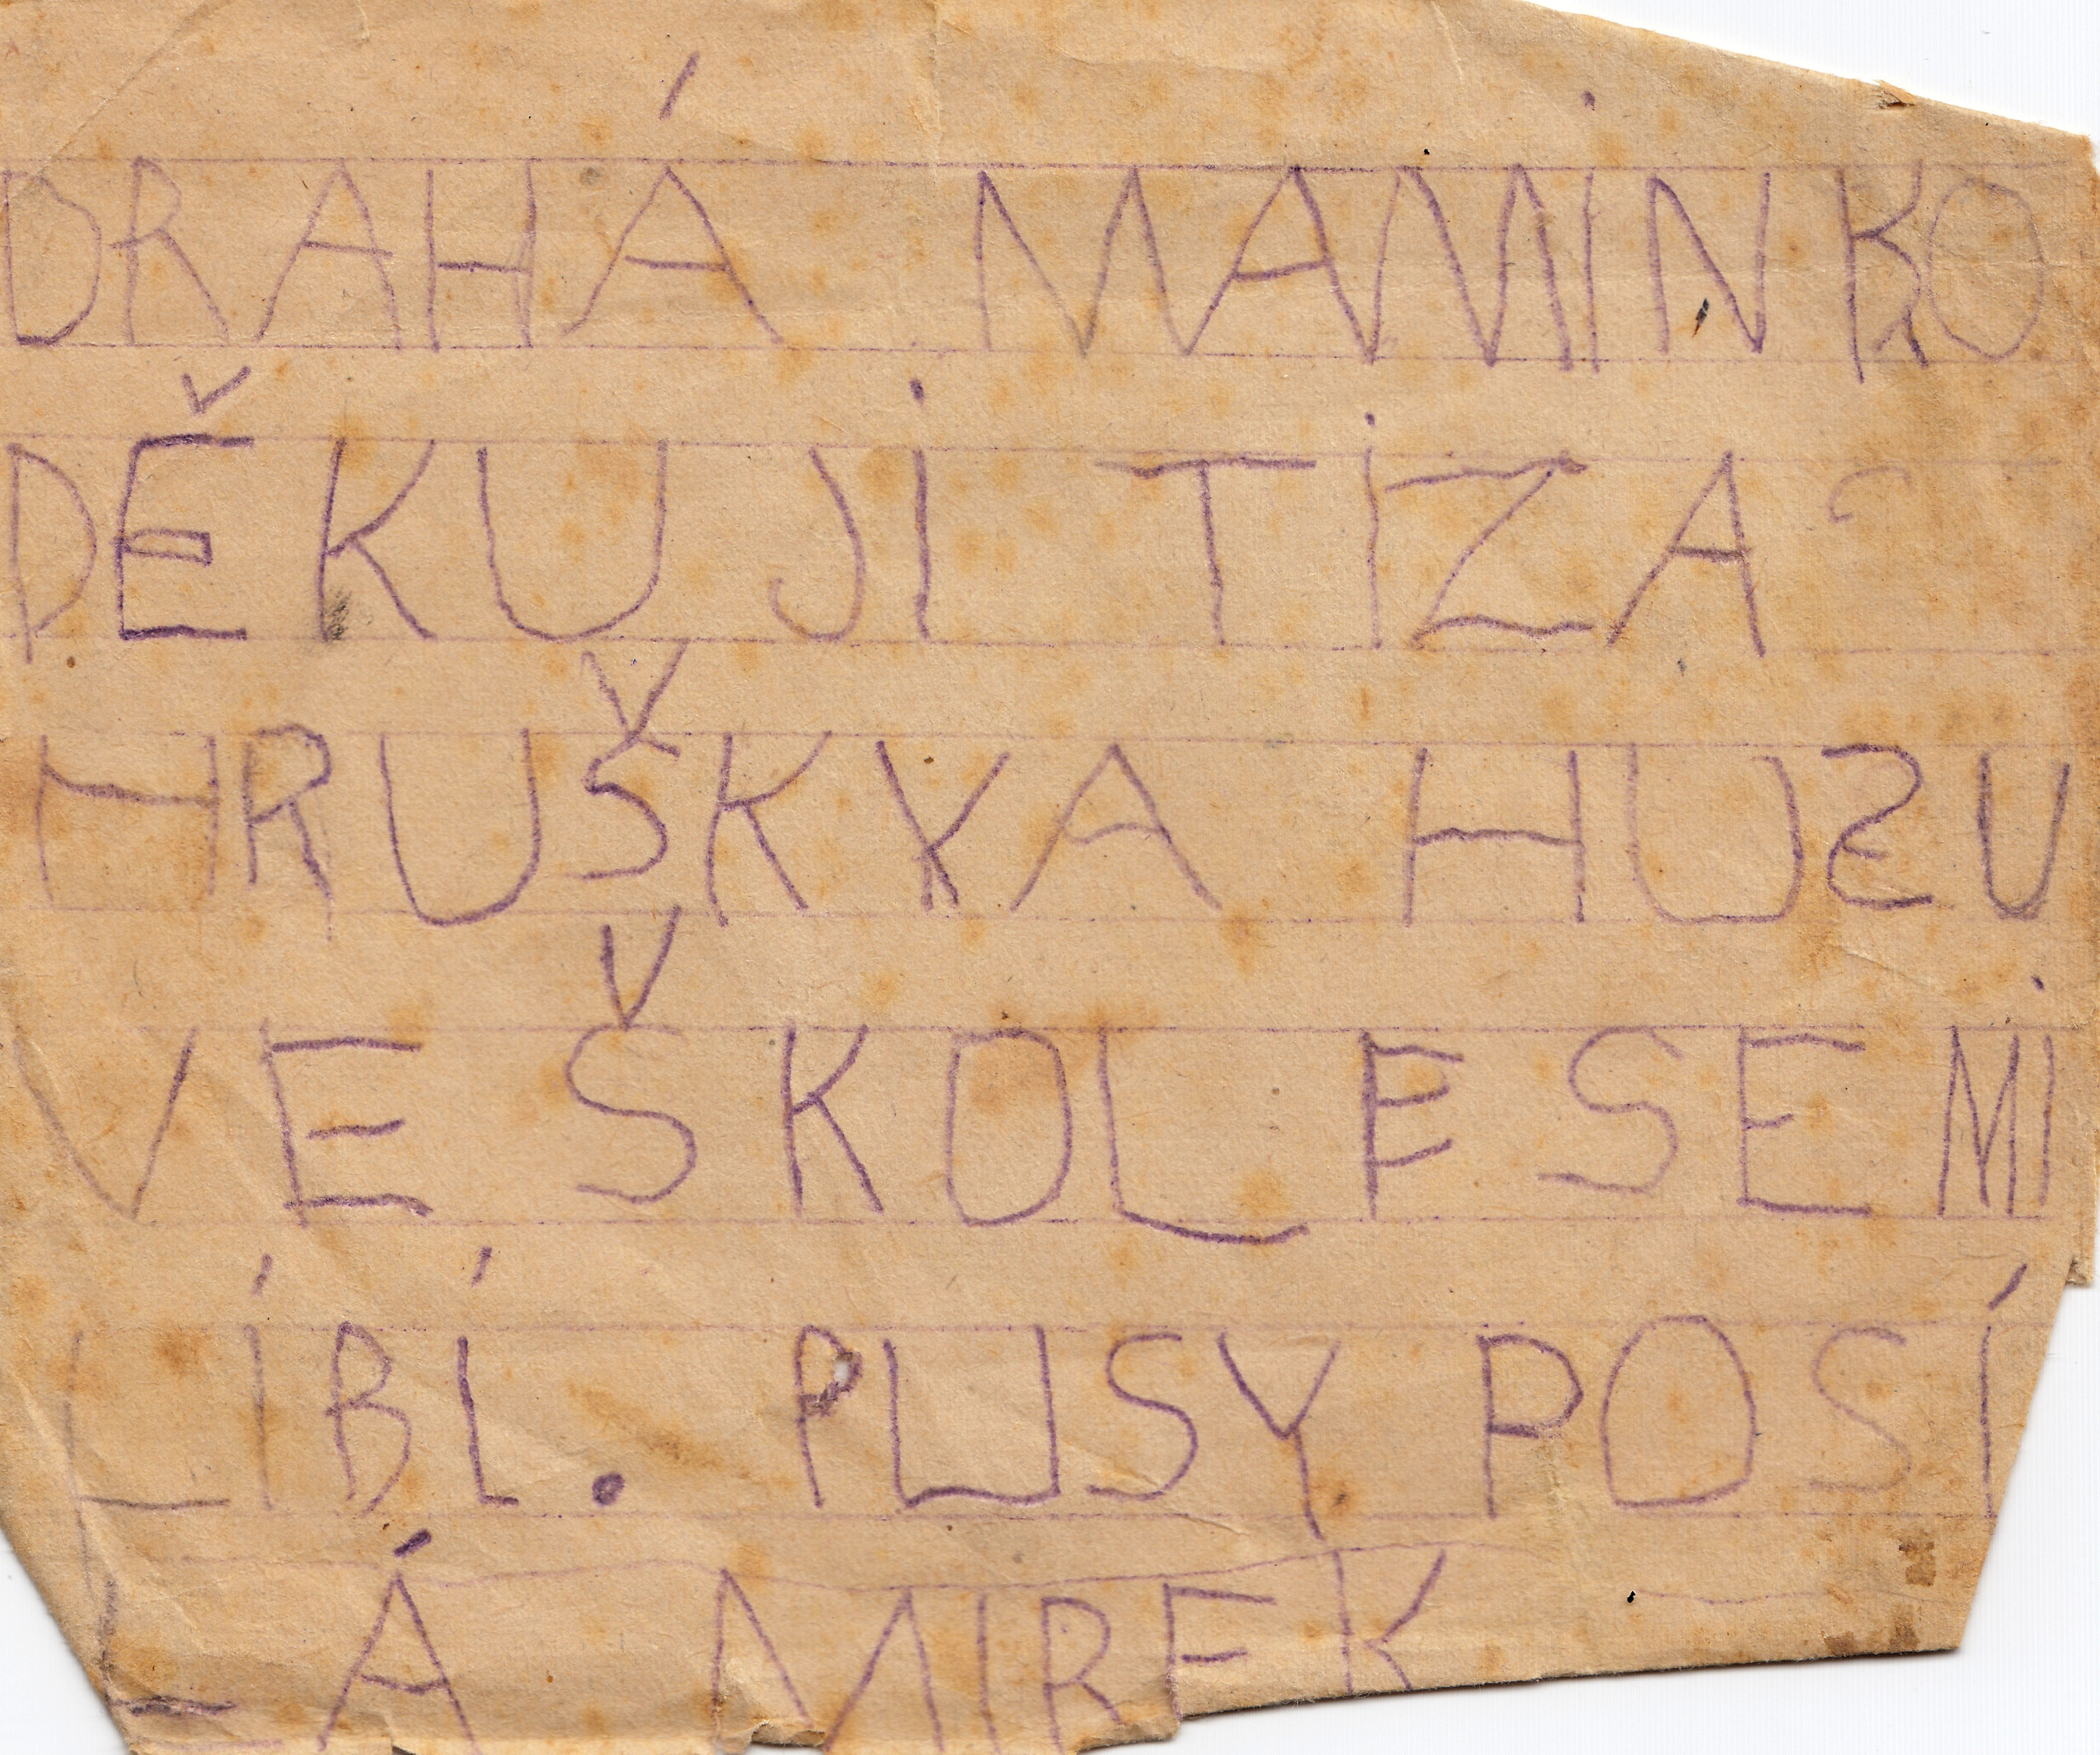 DRAHÁ MAMINKO
DĚKUJI TI ZA
HRUŠKY A HUSU
VE ŠKOLE SE MI
LÍBÍ. PUSY POSÍ
LÁ MIREK